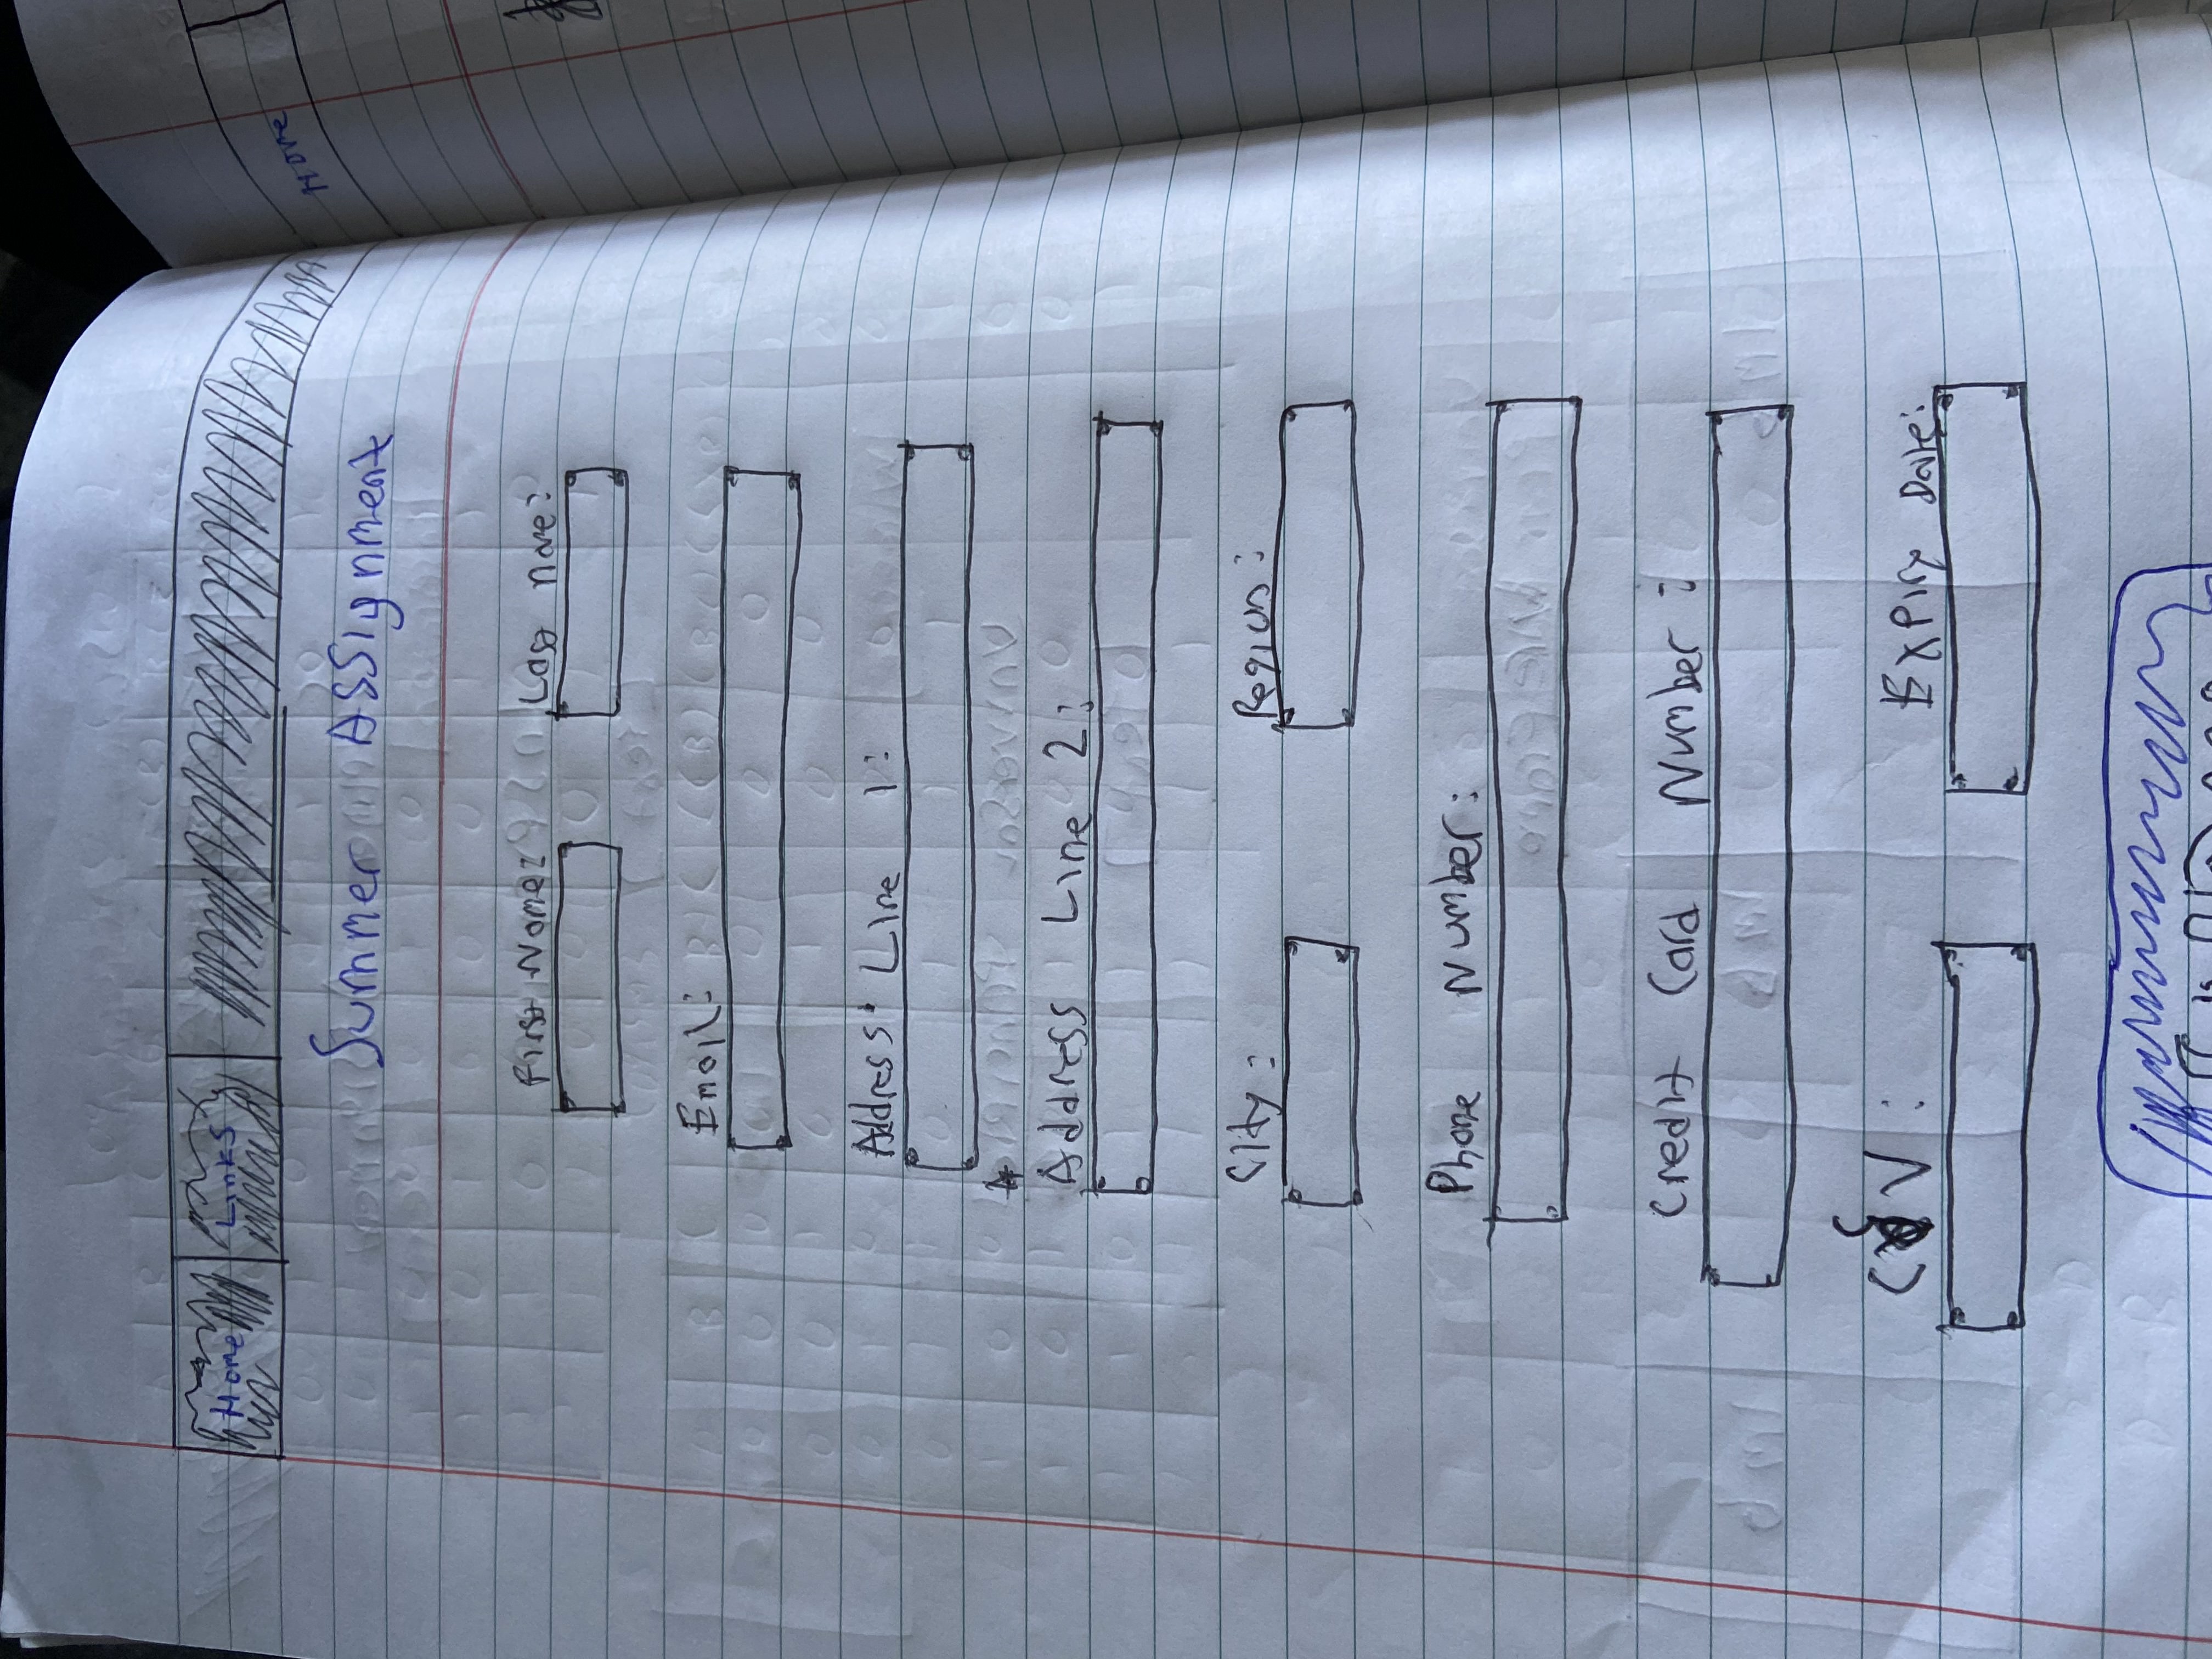 Home Links
Home
Summer Assignment
First Name: Last name:
Email:
Address Line 1:
Address Line 2:
City: Region:
Phone Number:
Credit Card Number:
Expiry Date: